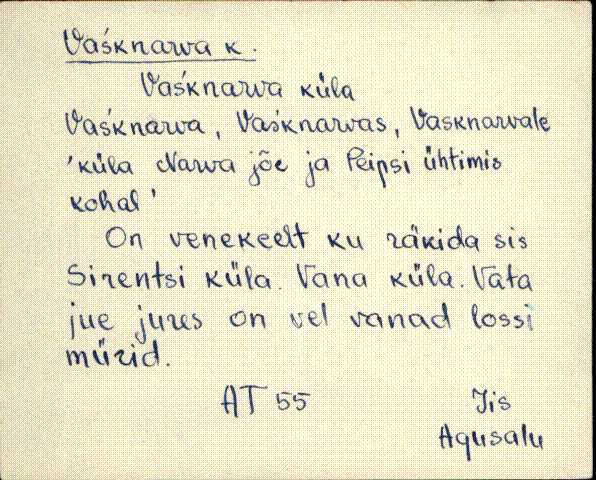 Vaśknarva k.
Vaśknarva küla
Vaśknarva, Vaśknarvas, Vasknarvale
'küla Narva jõe ja Peipsi ühtimis
kohal'
On venekeelt ku räkida sis
Sirentsi küla. Vana küla. Vata
jue jures on vel vanad lossi
mürid.
AT 55 Jis
Agusalu